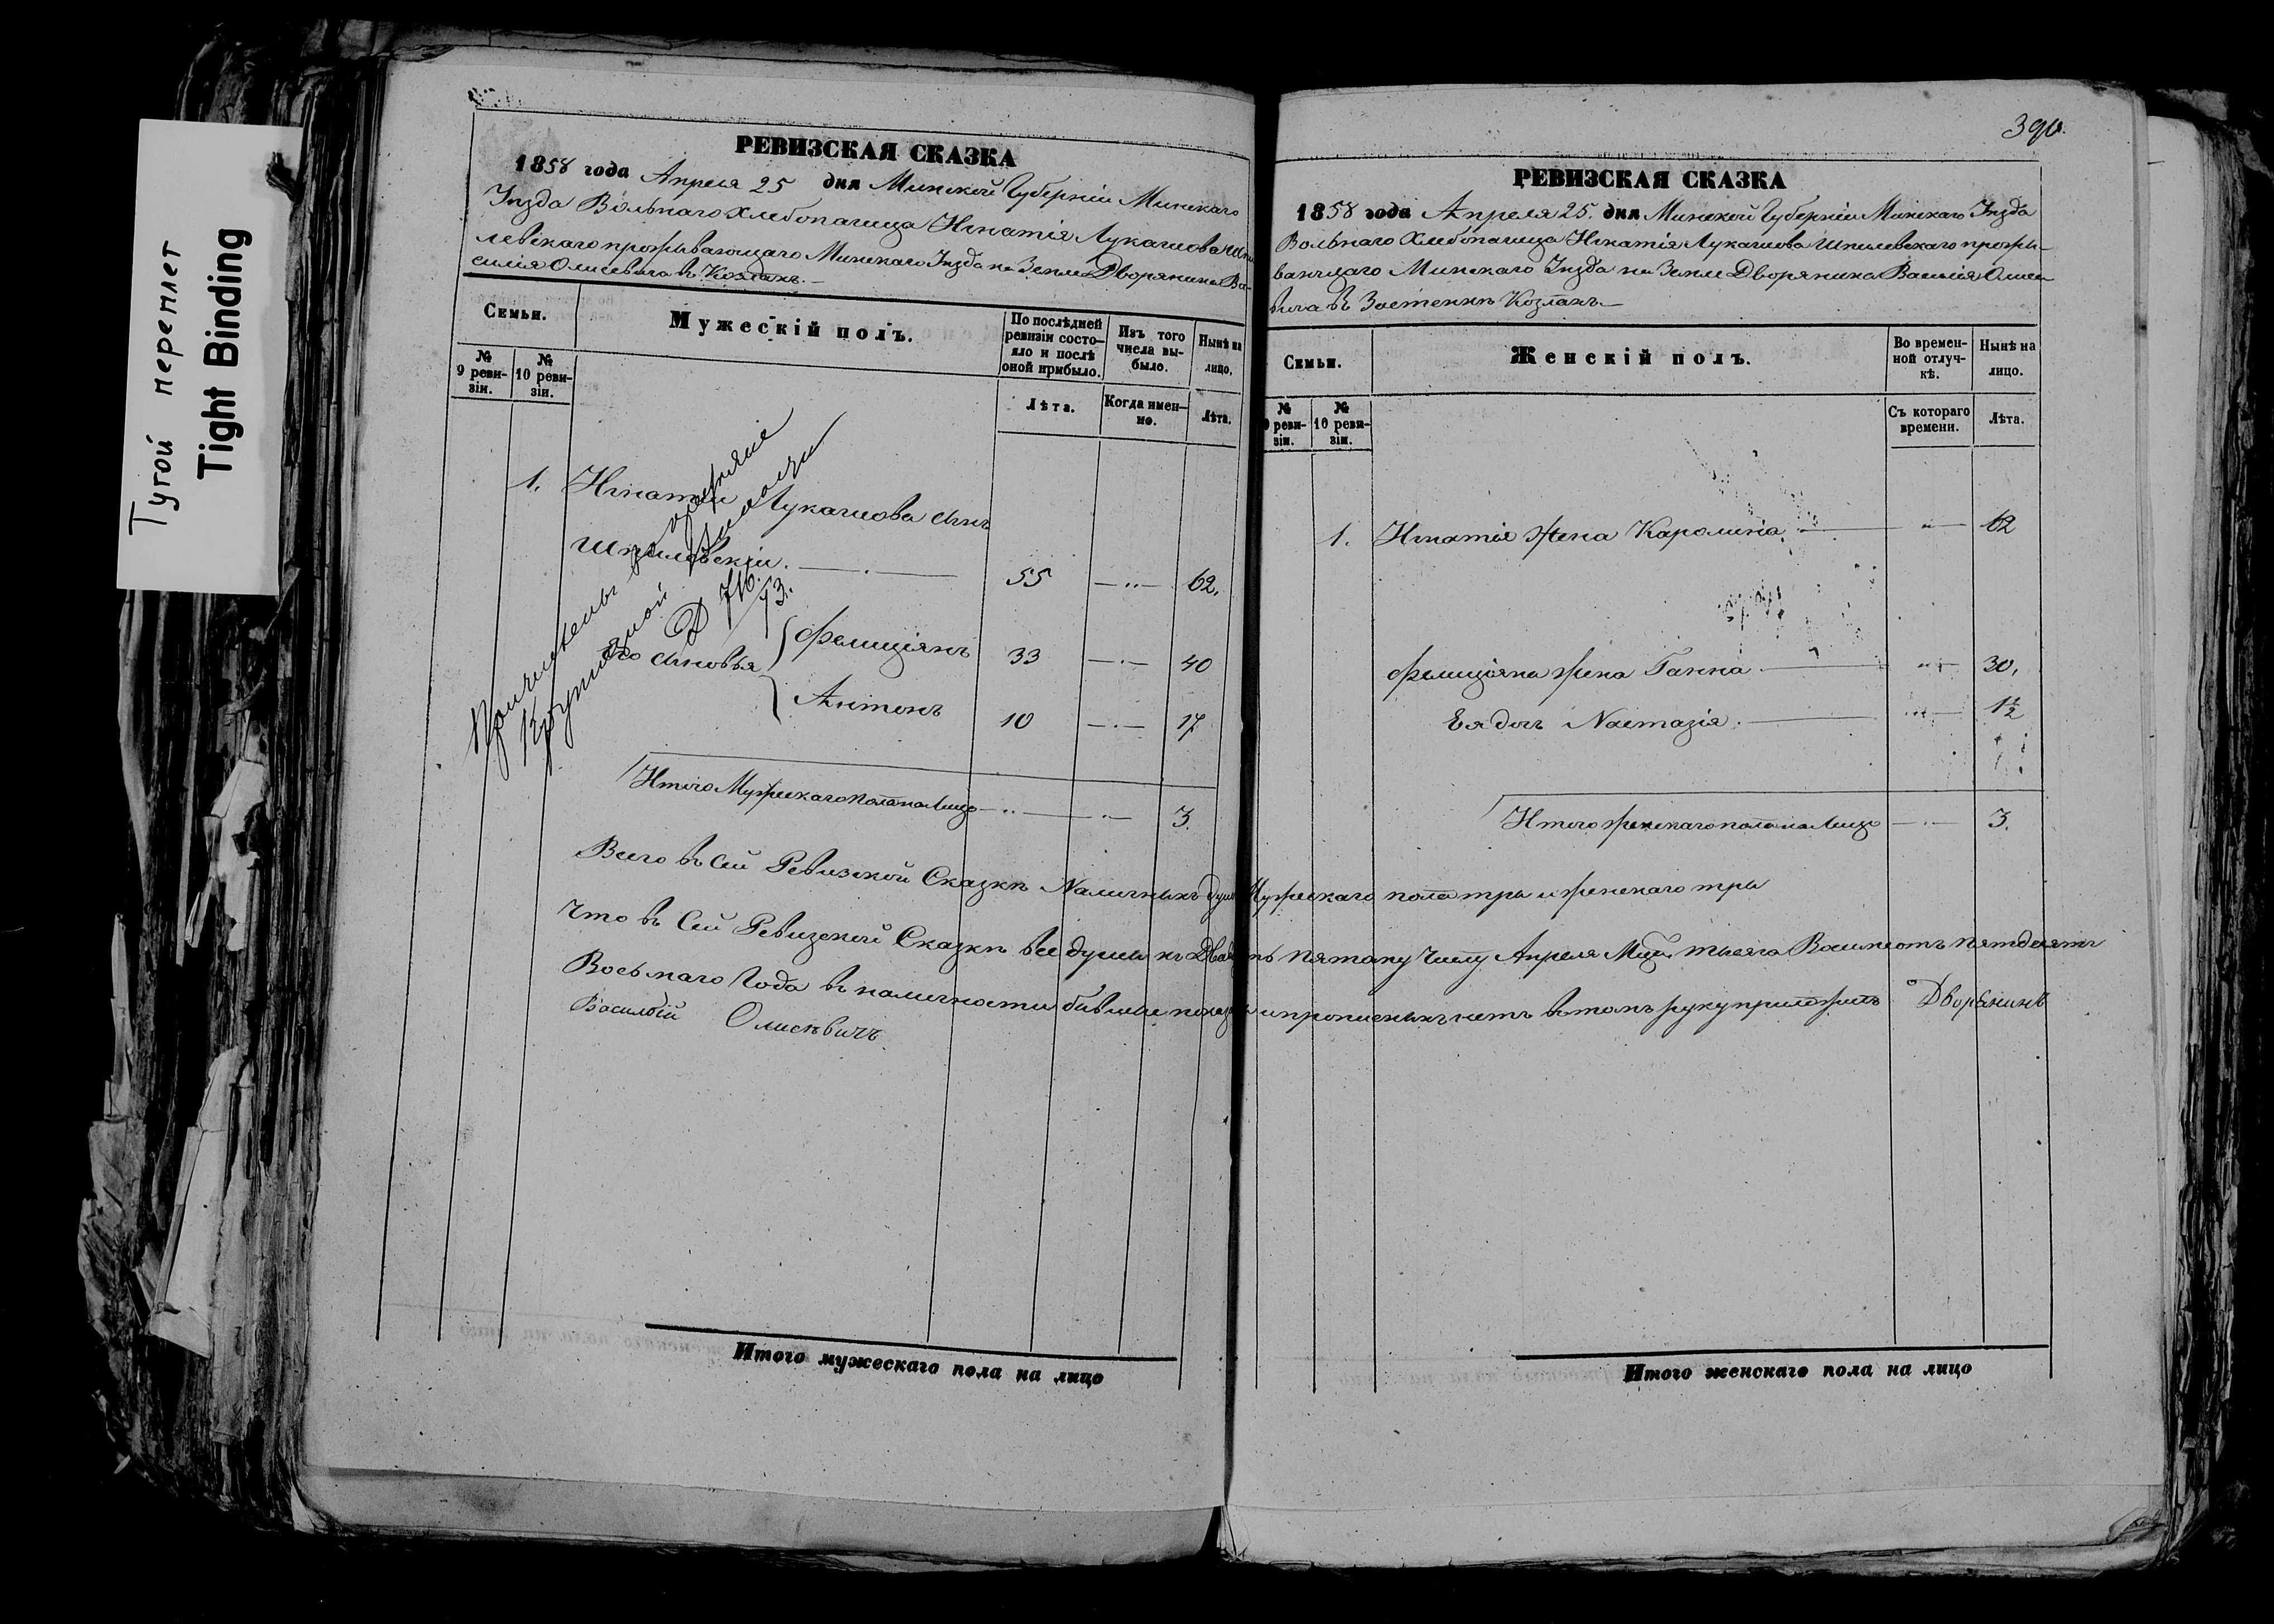 Тугой переплет
Tight Binding
РЕВИЗСКАЯ СКАЗКА
1858 года Апреля 25 дня Минской Губерніи Минскаго
Уѣзда Вольнаго Хлебопашца Игнатія Лукашова Шпи
левскаго проживающаго Минскаго Уѣзда на Земле Дворянина Ва-
силія Олисевича въ Козлахъ.—
Семьи.
Мужескій полъ.
По послѣдней ревизіи состо-
яло и послѣ
оной прибыло.
Изъ того
числа вы-
было.
Нынѣ на
лицо.
№
9 реви-
зіи.
№
10 реви-
зіи.
Лѣта.
Когда имен-
но.
Лѣта.
1. Игнатій Лукашова сынъ
Шпилевскій. — 55 — 62.
Его сыновья Фелиціянъ 33 — 40
Антонъ 10 — 17
710.
73.
Итого Мужескаго пола на Лицо — 3.
390.
РЕВИЗСКАЯ СКАЗКА
1858 года Апреля 25. дня Минской Губерніи Минскаго Уѣзда
Вольнаго Хлебопашца Игнатія Лукашова Шпилевскаго прожи-
Минскаго Уѣзда на Земле Дворянина Василія Олисе
вича въ Застенкѣ Козлахъ.—
Семьи.
Женскій полъ.
Во времен-
ной отлуч-
кѣ.
Нынѣ на
лицо.
№
9 реви-
зіи.
№
10 реви-
зіи.
Съ котораго
времени.
Лѣта.
1. Игнатія жена Каролина — 62
Фелиціяна жена Ганна — 30.
Ея дочь Настазія. — 1½
Итого женскаго пола на Лицо — 3.
Всего въ Сей Ревизской Сказкѣ Наличныхъ душъ Мужескаго пола три и женскаго три
Что въ Сей Ревизской Сказкѣ все души къ Двадцать пятому Числу Апреля Тысяча Восемсотъ пятдесятъ
Восьмаго Года въ наличности бывшие и прописныхъ нетъ въ томъ руку приложилъ Дворянинъ
Василій Олисѣвичъ
Итого мужескаго пола на лицо
Итого женскаго пола на лицо